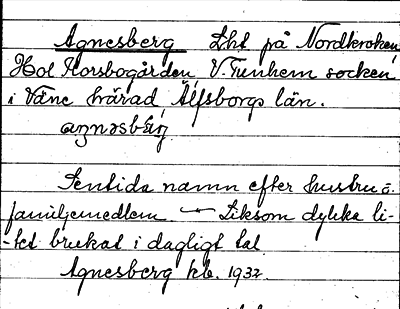 Agnesberg Lht på Nordkroken,
Hol Korsbogården, V. Tunhem socken
i Väne härad Älfsborgs län.
agnəsbærj
Sentida namn efter hustru o.
familjemedlem. — Liksom dylika li-
-tet brukat i dagligt tal
Agnesberg kb. 1932